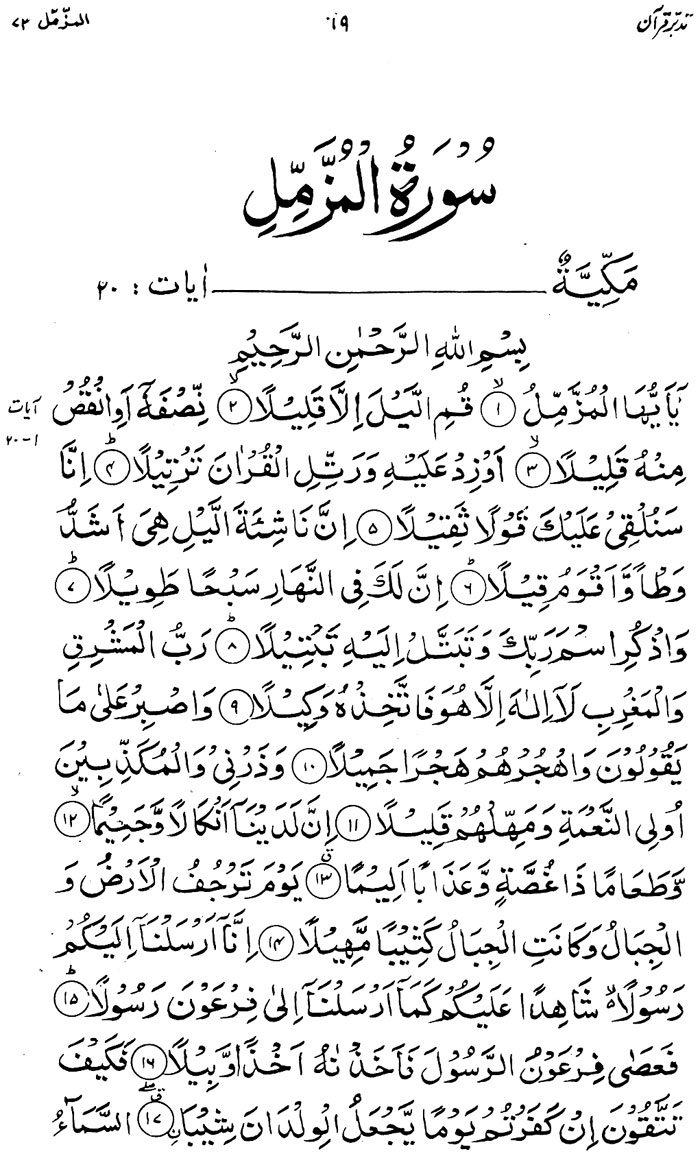 تدبر قرآن ۱۹ المزّمّل ۷۳
سُوْرَةُ الْمُزَّمِّلِ
مَكِّيَّةٌ اٰيات : ۲۰
بِسْمِ اللهِ الرَّحْمٰنِ الرَّحِيْمِ
يٰۤاَيُّهَا الْمُزَّمِّلُ ۙ﴿۱﴾ قُمِ الَّيْلَ اِلَّا قَلِيْلًا ۙ﴿۲﴾ نِّصْفَهٗۤ اَوِ انْقُصْ
آيات
۱-۲۰
مِنْهُ قَلِيْلًا ۙ﴿۳﴾ اَوْزِدْ عَلَيْهِ وَرَتِّلِ الْقُرْاٰنَ تَرْتِيْلًا ؕ﴿۴﴾ اِنَّا
سَنُلْقِيْ عَلَيْكَ قَوْلًا ثَقِيْلًا ﴿۵﴾ اِنَّ نَاشِئَةَ الَّيْلِ هِيَ اَشَدُّ
وَطْاً وَّاَقْوَمُ قِيْلًا ؕ﴿۶﴾ اِنَّ لَكَ فِي النَّهَارِ سَبْحًا طَوِيْلًا ؕ﴿۷﴾
وَاذْكُرِ اسْمَ رَبِّكَ وَتَبَتَّلْ اِلَيْهِ تَبْتِيْلًا ؕ﴿۸﴾ رَبُّ الْمَشْرِقِ
وَالْمَغْرِبِ لَاۤ اِلٰهَ اِلَّا هُوَ فَاتَّخِذْهُ وَكِيْلًا ﴿۹﴾ وَاصْبِرْ عَلٰى مَا
يَقُوْلُوْنَ وَاهْجُرْهُمْ هَجْرًا جَمِيْلًا ﴿۱۰﴾ وَذَرْنِيْ وَالْمُكَذِّبِيْنَ
اُولِي النَّعْمَةِ وَمَهِّلْهُمْ قَلِيْلًا ﴿۱۱﴾ اِنَّ لَدَيْنَاۤ اَنْكَالًا وَّجَحِيْمًا ۙ﴿۱۲﴾
وَّطَعَامًا ذَا غُصَّةٍ وَّعَذَابًا اَلِيْمًا ۗ﴿۱۳﴾ يَوْمَ تَرْجُفُ الْاَرْضُ وَ
الْجِبَالُ وَكَانَتِ الْجِبَالُ كَثِيْبًا مَّهِيْلًا ﴿۱۴﴾ اِنَّاۤ اَرْسَلْنَاۤ اِلَيْكُمْ
رَسُوْلًا ۙ شَاهِدًا عَلَيْكُمْ كَمَاۤ اَرْسَلْنَاۤ اِلٰى فِرْعَوْنَ رَسُوْلًا ؕ﴿۱۵﴾
فَعَصٰى فِرْعَوْنُ الرَّسُوْلَ فَاَخَذْنٰهُ اَخْذًا وَّبِيْلًا ﴿۱۶﴾ فَكَيْفَ
تَتَّقُوْنَ اِنْ كَفَرْتُمْ يَوْمًا يَّجْعَلُ الْوِلْدَانَ شِيْبَاۨ ﴿۱۷﴾ السَّمَآءُ